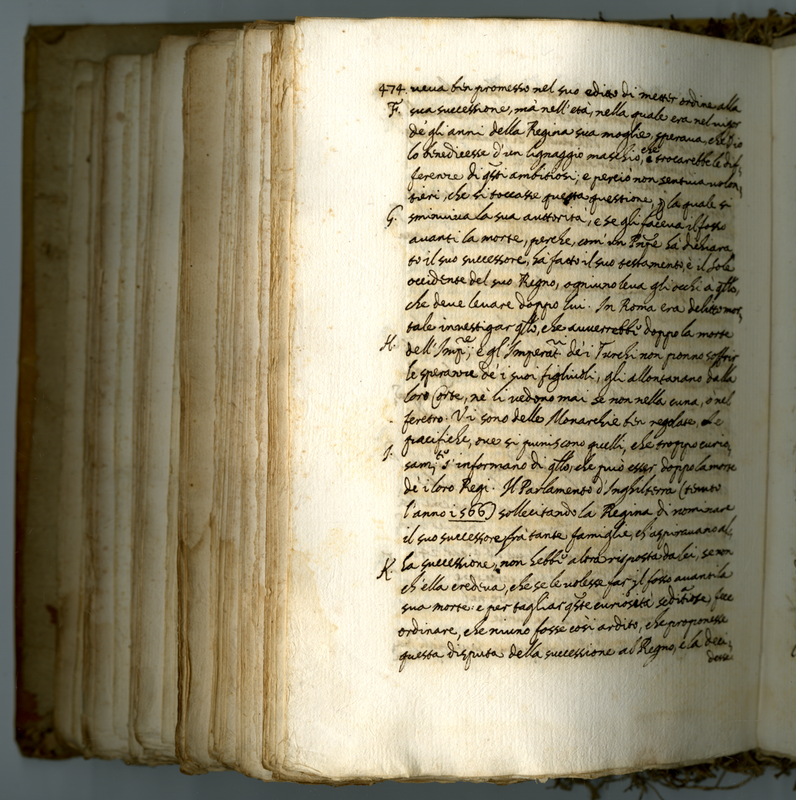 474. ueua ben promesso nel suo editto di metter ordine alla
F. sua successione, mà nell'età, nella quale era nel uigor
dé gli anni della Regina sua moglie, speraua, che Dio
lo benedicesse d'un lignaggio maschio, che troncarebbe le dif-
ferenze di qsti ambitiosi; e perciò non sentiua uolon-
tieri, che si toccasse questa questione, la quale si
G. sminuiua la sua auttorità, e se gli faceua il fosso
auanti la morte, perche, com' un Pnpe hà dichiara
to il suo successore, hà fatto il suo testamento, è il Sole
occidente del suo Regno, ogniuno leua gli occhi a qllo,
che deue leuare doppo lui. In Roma era delitto mor-
tale inuestigar qllo, che auuerrebbe doppo la morte
H. dell' Impre; e gl' Imperat.ri dé i Turchi non ponno soffrir
le speranze dé i suoi figliuoli, gli allontanano dalla
loro Corte, né li uedono mai se non nella cuna, ò nel
feretro. Vi sono delle Monarchie ben regolate, e
pacifiche, oue si puniscono quelli, che troppo curio-
I. sam.te s' informano di qllo, che può esser doppo la morte
dé i loro Regi. Il Parlamento d' Inghilterra (tenuto
l' anno 1566) sollecitando la Regina di nominare
il suo successore frà tante famiglie, ch' aspirauano al-
K. la successione, non hebbe altra risposta da lei, se non
ch' ella credeua, che se le uolesse far il fosso auanti la
sua morte: e per tagliar qste curiosità seditiose, fece
ordinare, che niuno fosse così ardito, che proponesse
questa disputa della successione al Regno, e la deci-
desse